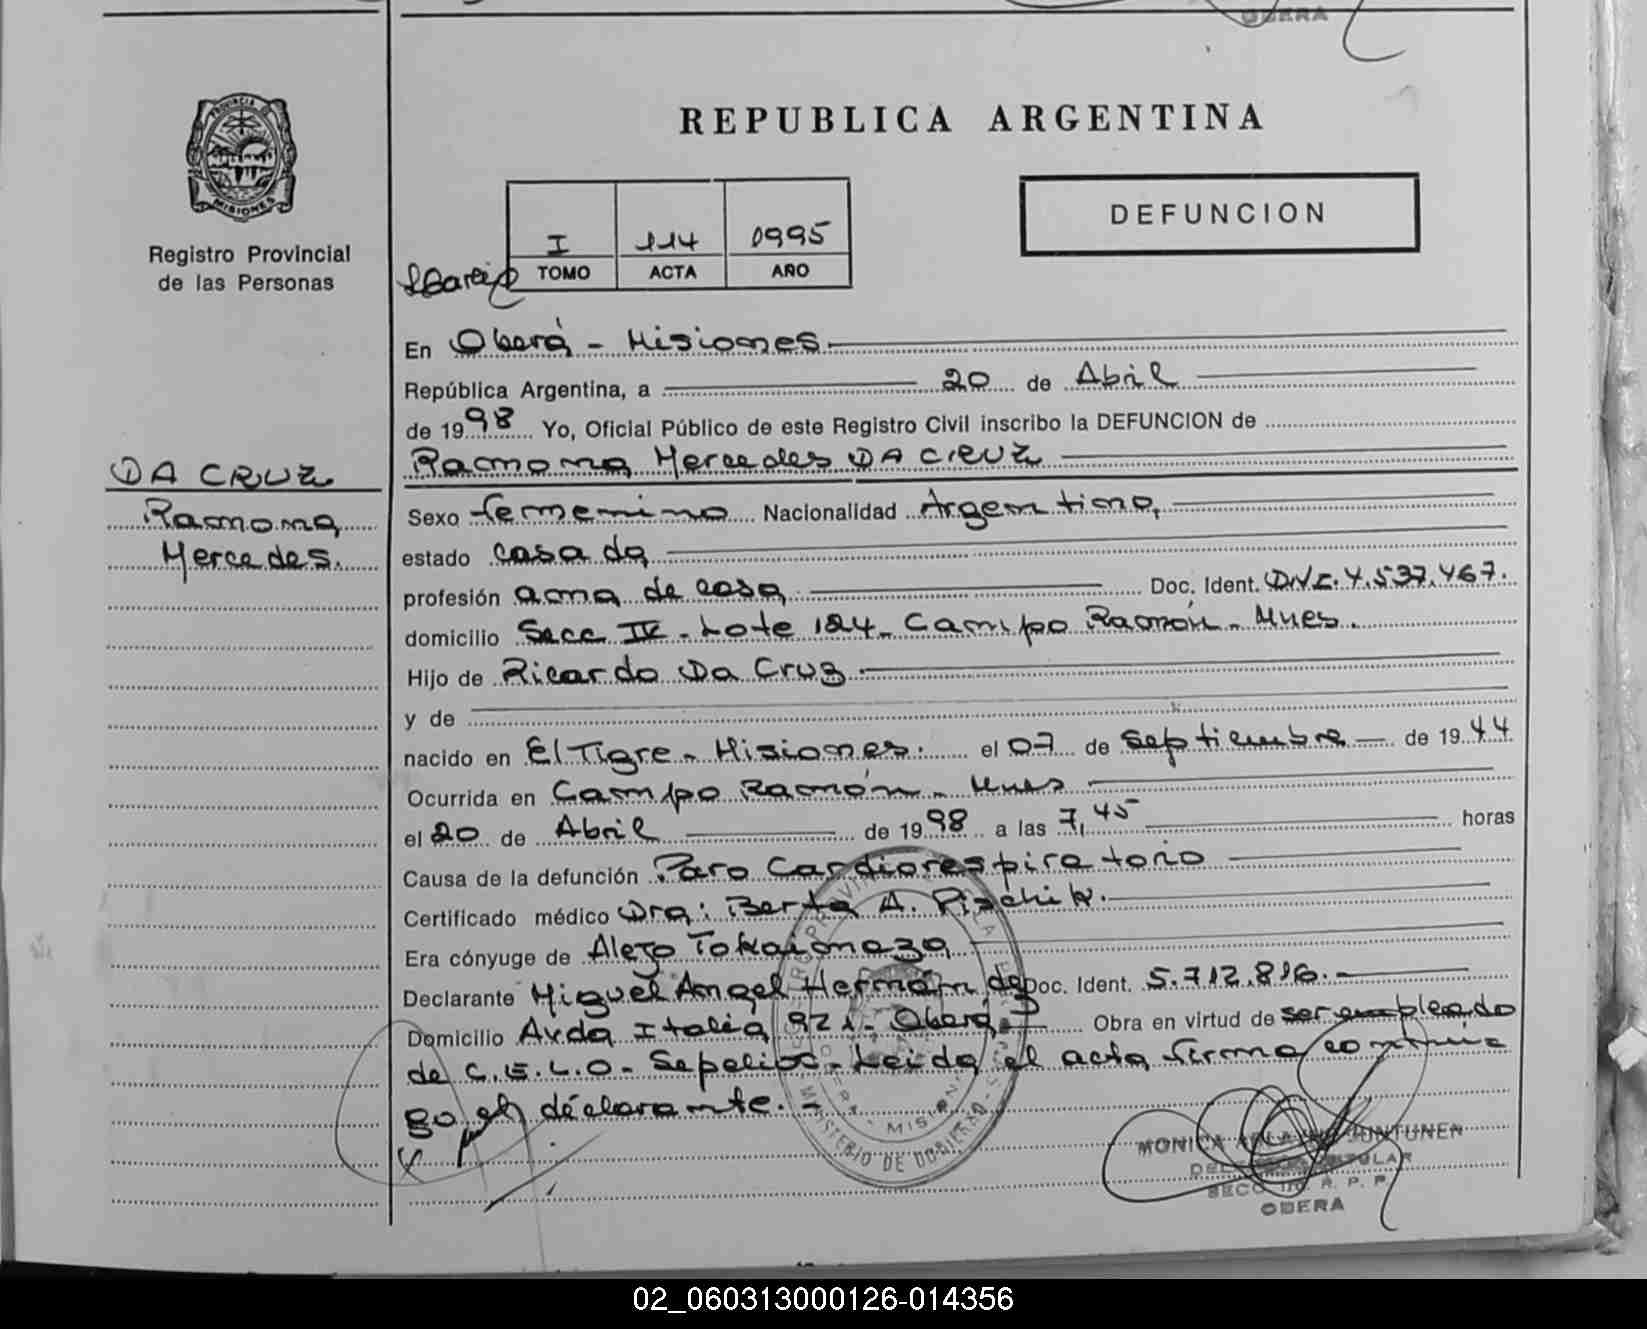 OBERA
PROVINCIA
MISIONES
Registro Provincial
de las Personas
REPUBLICA ARGENTINA
DEFUNCION
I 114 0995
TOMO ACTA AÑO
En Oberá - Misiones.
República Argentina, a 20 de Abril
de 1998 Yo, Oficial Público de este Registro Civil inscribo la DEFUNCION de
Ramona Mercedes DA CRUZ
DA CRUZ
Ramona
Mercedes.
Sexo femenino Nacionalidad Argentina,
estado casada
profesión ama de casa Doc. Ident. D.N.I. 4.537.467.
domicilio Secc IV - Lote 124 - Campo Ramón - Mnes.
Hijo de Ricardo Da Cruz
y de
nacido en El Tigre - Misiones. el 07 de Septiembre de 1944
Ocurrida en Campo Ramón - Mnes
el 20 de Abril de 1998 a las 7,45 horas
Causa de la defunción Paro Cardiorespiratorio
Certificado médico Dra: Berta A. Pischik.
Era cónyuge de Alejo Tokaimaza
Declarante Miguel Angel Hernán de Doc. Ident. 5.712.816.
Domicilio Avda Italia 921 - Oberá Obra en virtud de ser empleado
de C.E.L.O - Sepelios - Leida el acta firma conmi
go el declarante. -
MINISTERIO DE GOBIERNO
MISIONES
MONICA JUNTUNEN
TITULAR
SECC. R. P. P.
OBERA
02_060313000126-014356